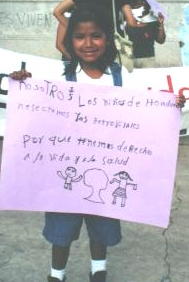 ESVIVEN
NosoTRos Los niños de Hondu
nesecitamos los retrovirales
por que tenemos derecho
a la vida y a la salud